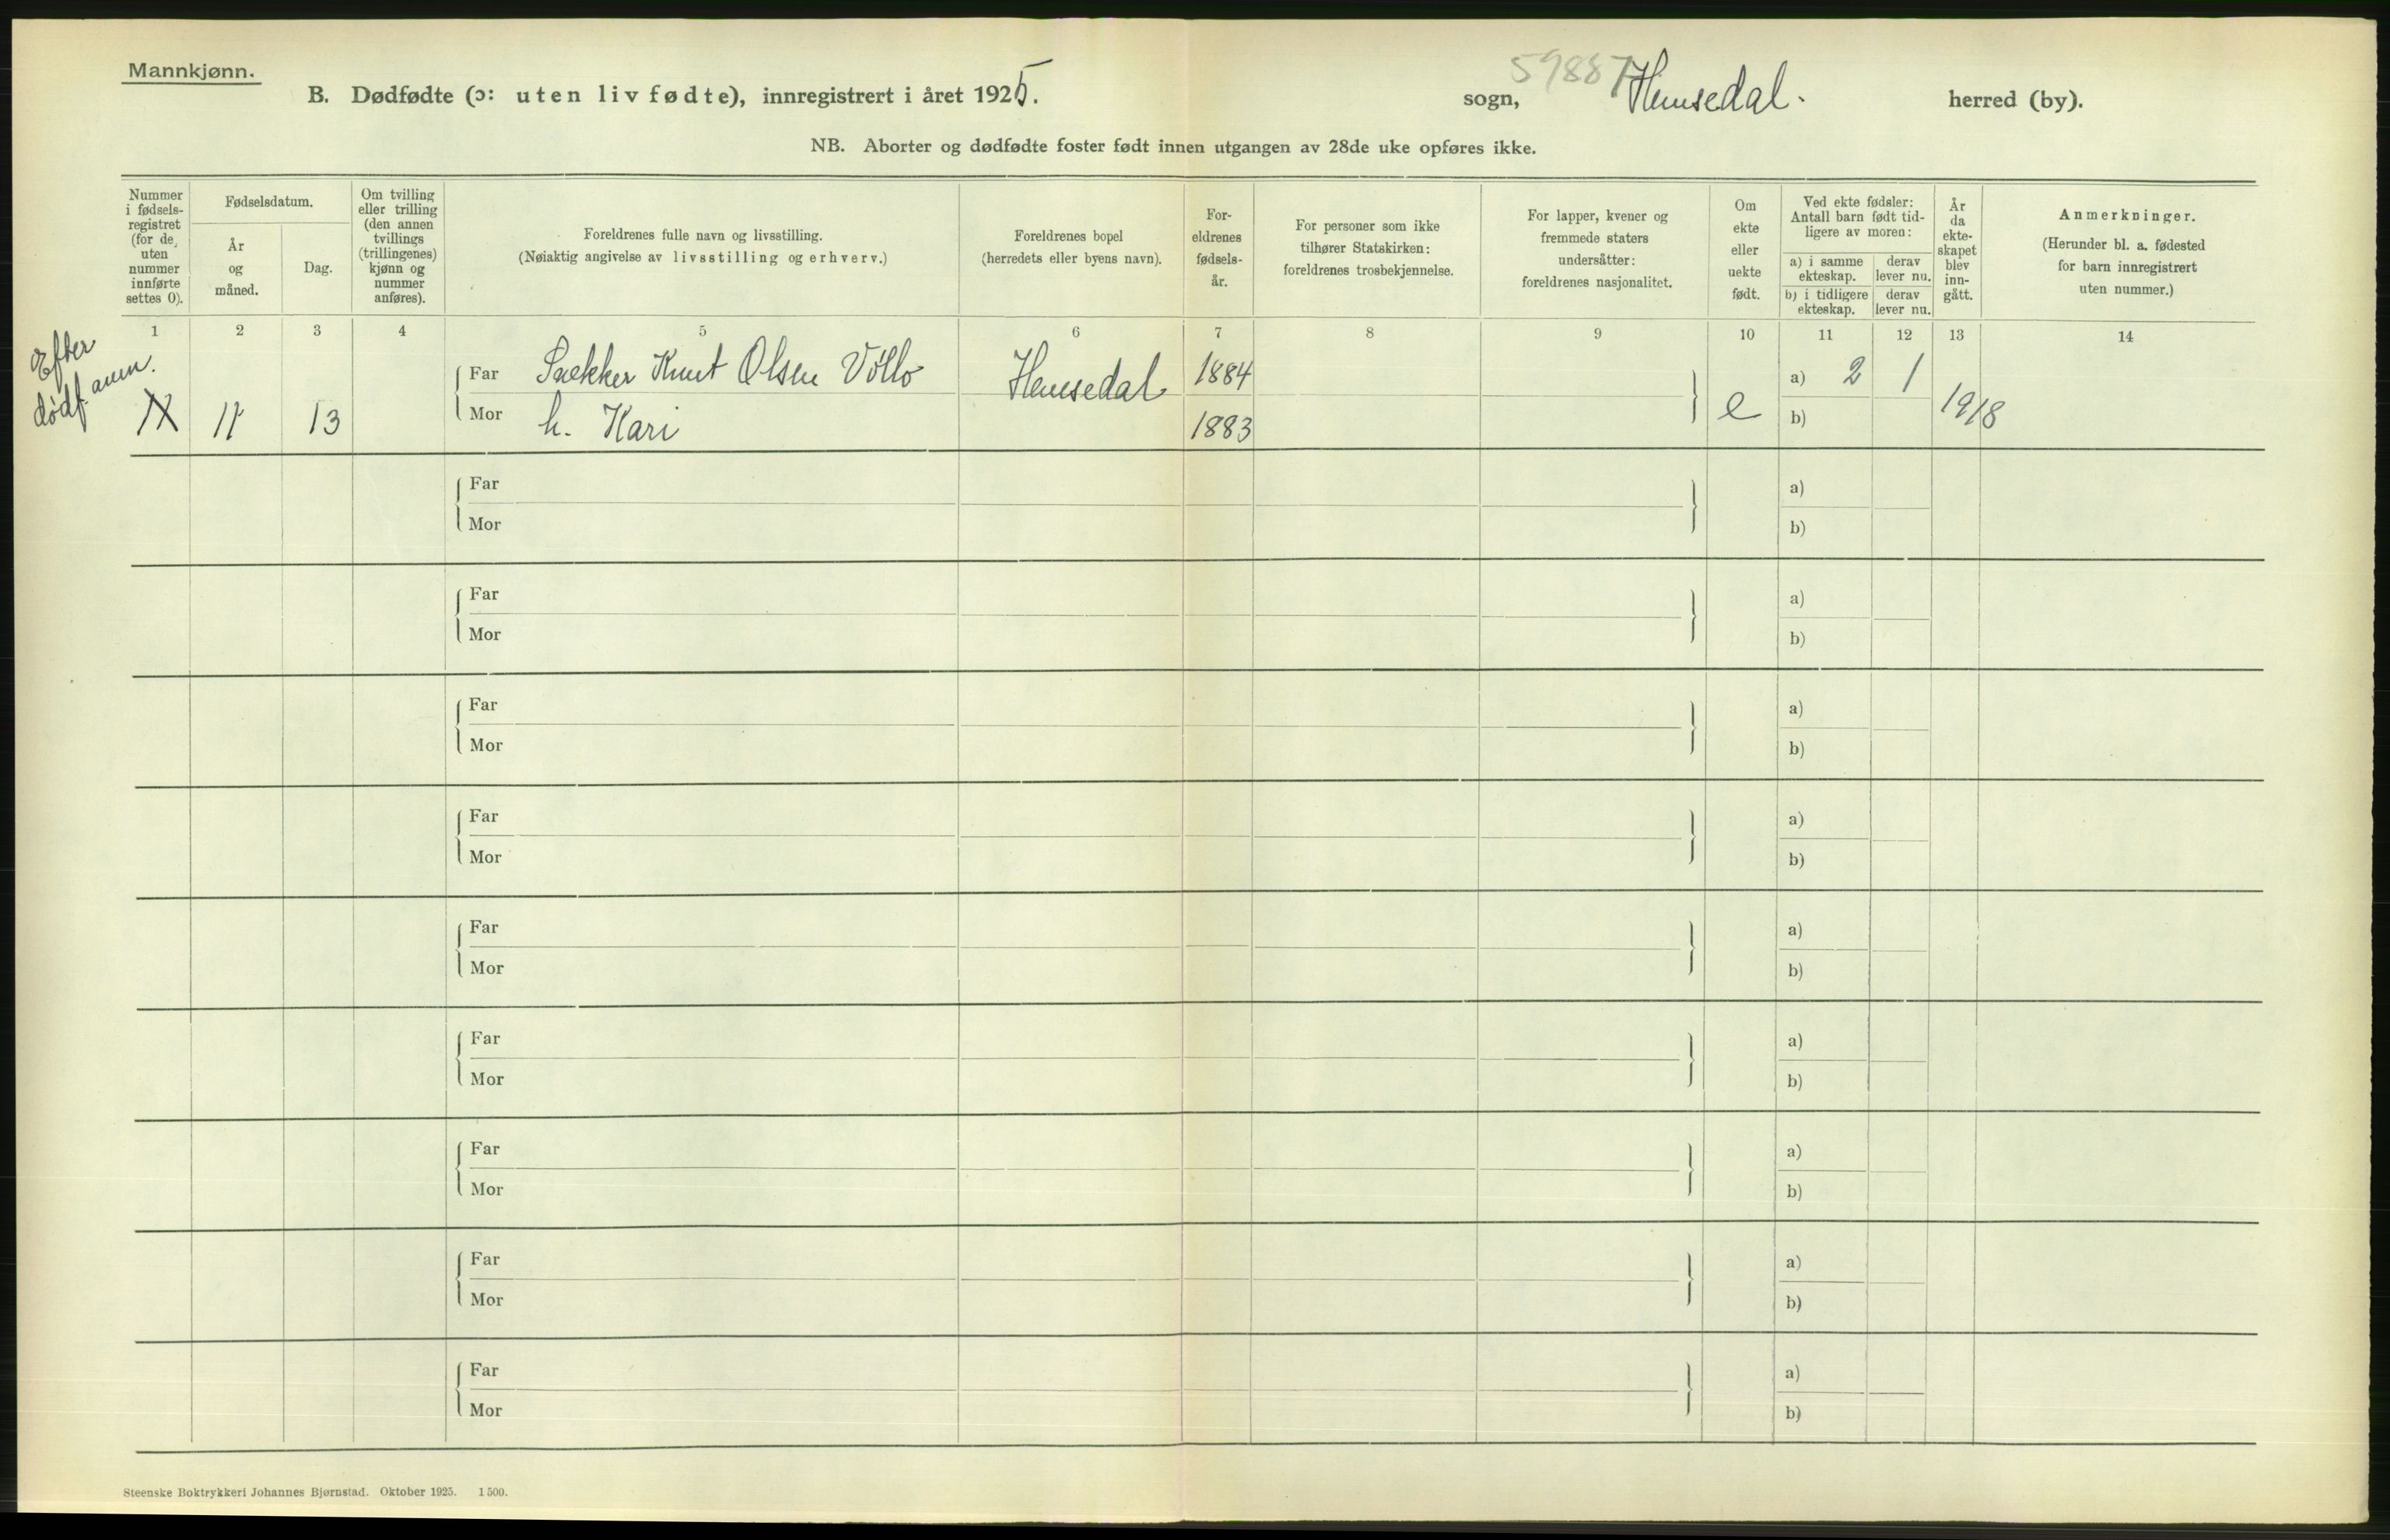 Mannkjønn.
B. Dødfødte (ɔ: uten liv fødte), innregistrert i året 1925. sogn, 59887 Hemsedal. herred (by).
NB. Aborter og dødfødte foster født innen utgangen av 28de uke opføres ikke.
Nummer i fødsels-registret (for de uten nummer innførte settes 0).
Fødselsdatum.
År og måned.
Dag.
Om tvilling eller trilling (den annen tvillings (trillingenes) kjønn og nummer anføres).
Foreldrenes fulle navn og livsstilling.
(Nøiaktig angivelse av livsstilling og erhverv.)
Foreldrenes bopel
(herredets eller byens navn).
For-
eldrenes
fødsels-
år.
For personer som ikke
tilhører Statskirken:
foreldrenes trosbekjennelse.
For lapper, kvener og
fremmede staters
undersåtter:
foreldrenes nasjonalitet.
Om
ekte
eller
uekte
født.
Ved ekte fødsler:
Antall barn født tid-
ligere av moren:
a) i samme ekteskap.
derav lever nu.
b) i tidligere ekteskap.
derav lever nu.
År
da
ekte-
skapet
blev
inn-
gått.
Anmerkninger.
(Herunder bl. a. fødested
for barn innregistrert
uten nummer.)
1 2 3 4 5 6 7 8 9 10 11 12 13 14
Efter
dødf. anm.
11 13
Far Snekker Knut Olsen Vøllo Hemsedal 1884 a) 2 1
Mor h. Kari 1883 e b) 1918
Far a)
Mor b)
Far a)
Mor b)
Far a)
Mor b)
Far a)
Mor b)
Far a)
Mor b)
Far a)
Mor b)
Far a)
Mor b)
Far a)
Mor b)
Far a)
Mor b)
Steenske Boktrykkeri Johannes Bjørnstad. Oktober 1925. 1500.